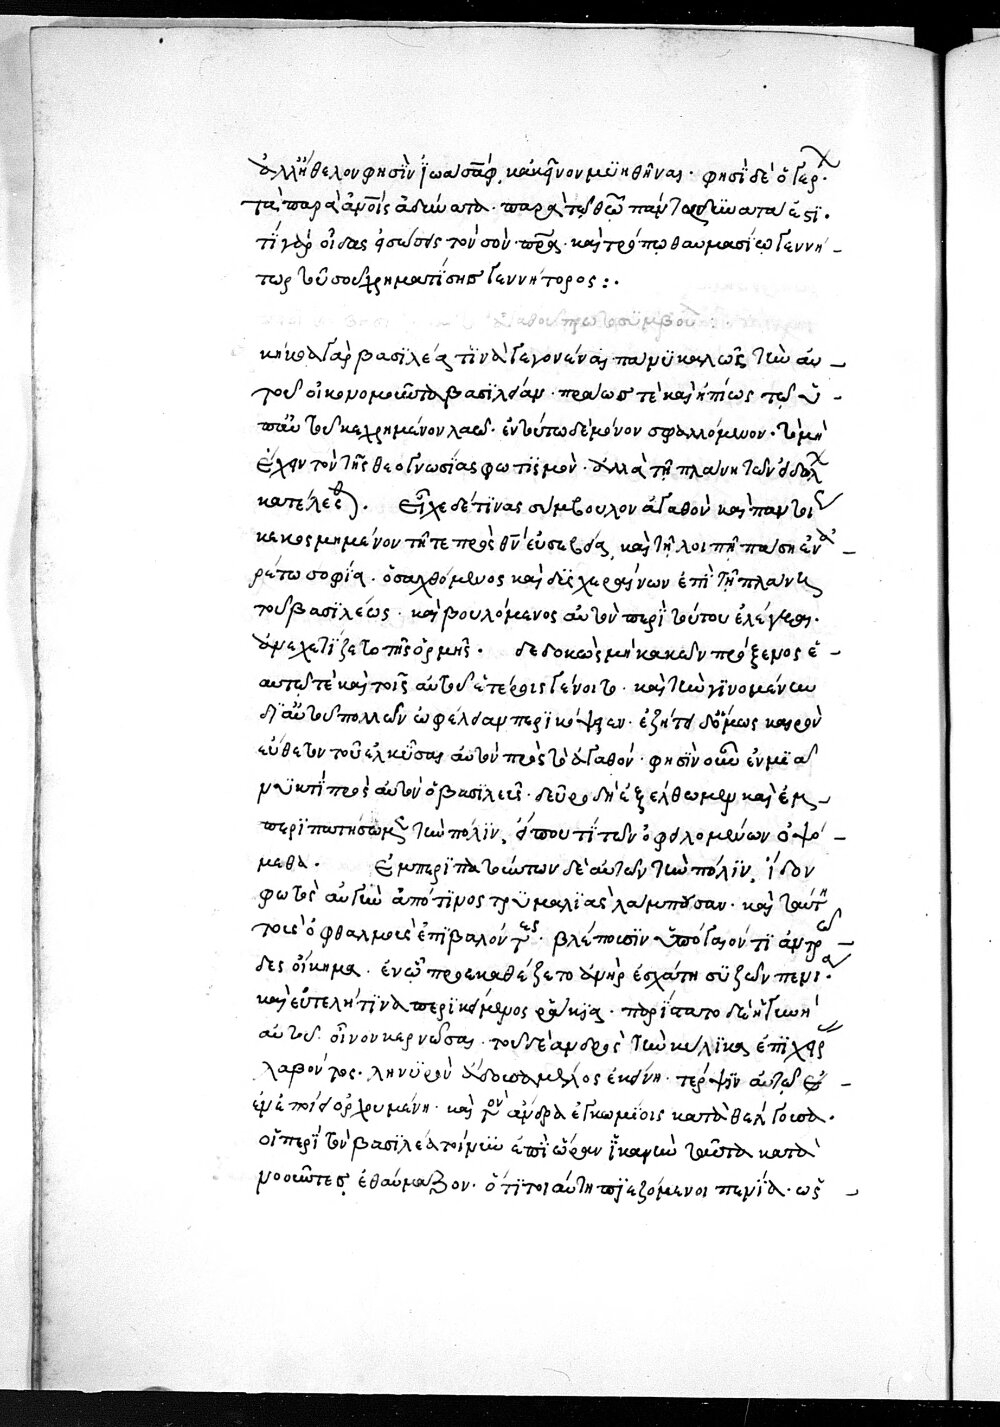 ἀλλ' ἤθελον φησὶν ἰωάσαφ, κἀκεῖνον μυηθῆναι· φησὶ δὲ ὁ γέρ·
τὰ παρὰ ἀνοις ἀδύνατα· παρὰ τῶ θεῶ πάντα δυνατά ἐστι·
τί γὰρ οἶδας εἰ σώσεις τὸν σὸν πρα· καὶ τρόπω θαυμασίω γεννή
τωρ τοῦ σοῦ χρηματίσης γεννήτορος:·
κήκοα γὰρ βασιλέα τινὰ γεγονέναι πάνυ καλῶς τὴν αυ
τοῦ οἰκονομοῦντα βασιλείαν· πράως τὲ καὶ ἠπίως τῶ ὑ
π' αὐτοῦ κεχρημένον λαῶ· ἐν τούτω δὲ μόνον σφαλλόμενον· τὸ μὴ
ἔχειν τὸν τῆς θεογνωσίας φωτισμὸν· ἀλλὰ τῆ πλάνη τῶν εἰδώλ
κατέχεσθ. Εἶχε δέ τινα σύμβουλον ἀγαθὸν καὶ παντοι
κεκοσμημένον τῆ τε πρὸς θν εὐσεβεία, καὶ τῆ λοιπῆ πάση ἐνα
ρέτω σοφία· ὃς ἀχθόμενος καὶ δυσχεραίνων ἐπὶ τῆ πλάνη
τοῦ βασιλέως· καὶ βουλόμενος αὐτὸν περὶ τούτου ἐλέγξαι·
ἀνεχαιτίζετο τῆς ὁρμῆς· δεδοικὼς μὴ κακῶν πρόξενος ἑ
αυτῶ τὲ καὶ τοῖς αὐτοῦ ἑτέροις γένοιτο· καὶ τὴν γινομένην
δι' αὐτοῦ πολλῶν ὠφέλειαν περικόψειεν· ἐζήτει δ' ὅμως καιρὸν
εὔθετον τοῦ ἑλκῦσαι αὐτὸν πρὸς τὸ ἀγαθόν· φησὶν οὖν ἐν μιᾶ
νυκτὶ πρὸς αὐτὸν ὁ βασιλεὺς· δεῦρο δὴ ἐξέλθωμεν καὶ ἐμ
περιπατήσωμεν τὴν πόλιν, εἴπου τί τῶν ὠφελουμένων ὀψό
μεθα. Ἐμπεριπατούντων δὲ αὐτῶν τὴν πόλιν, εἶδον
φωτὸς αὐγὴν ἀπό τινος τρυμαλιᾶς λάμπουσαν· καὶ ταύτη
τοὺς ὀφθαλμοὺς ἐπιβαλόντες· βλέπουσιν ὑπόγαιόν τι ἀντρῶ
δες οἴκημα· ἐν ὧ προεκαθέζετο ἀνὴρ ἐσχάτη συζῶν πενία·
καὶ εὐτελῆ τινα περικείμενος ράκια· παρίστατο δὲ ἡ γυνὴ
αὐτοῦ οἶνον κερνῶσα· τοῦ δὲ ἀνδρὸς τὴν κύλικα ἐπὶ χεῖρας
λαβόντος· λιγυρὸν ἄδουσα μέλος ἐκείνη· τέρψιν αὐτῶ
ἐνεποίει ὀρχουμένη· καὶ τὸν ἄνδρα ἐγκωμίοις καταθέλγουσα·
οἱ περὶ τὸν βασιλέα τοίνυν ἐπὶ ὥραν ἱκανὴν ταῦτα κατα
νοοῦντες ἐθαύμαζον· ὅτι τοιαύτη πιεζόμενοι πενία· ὡς